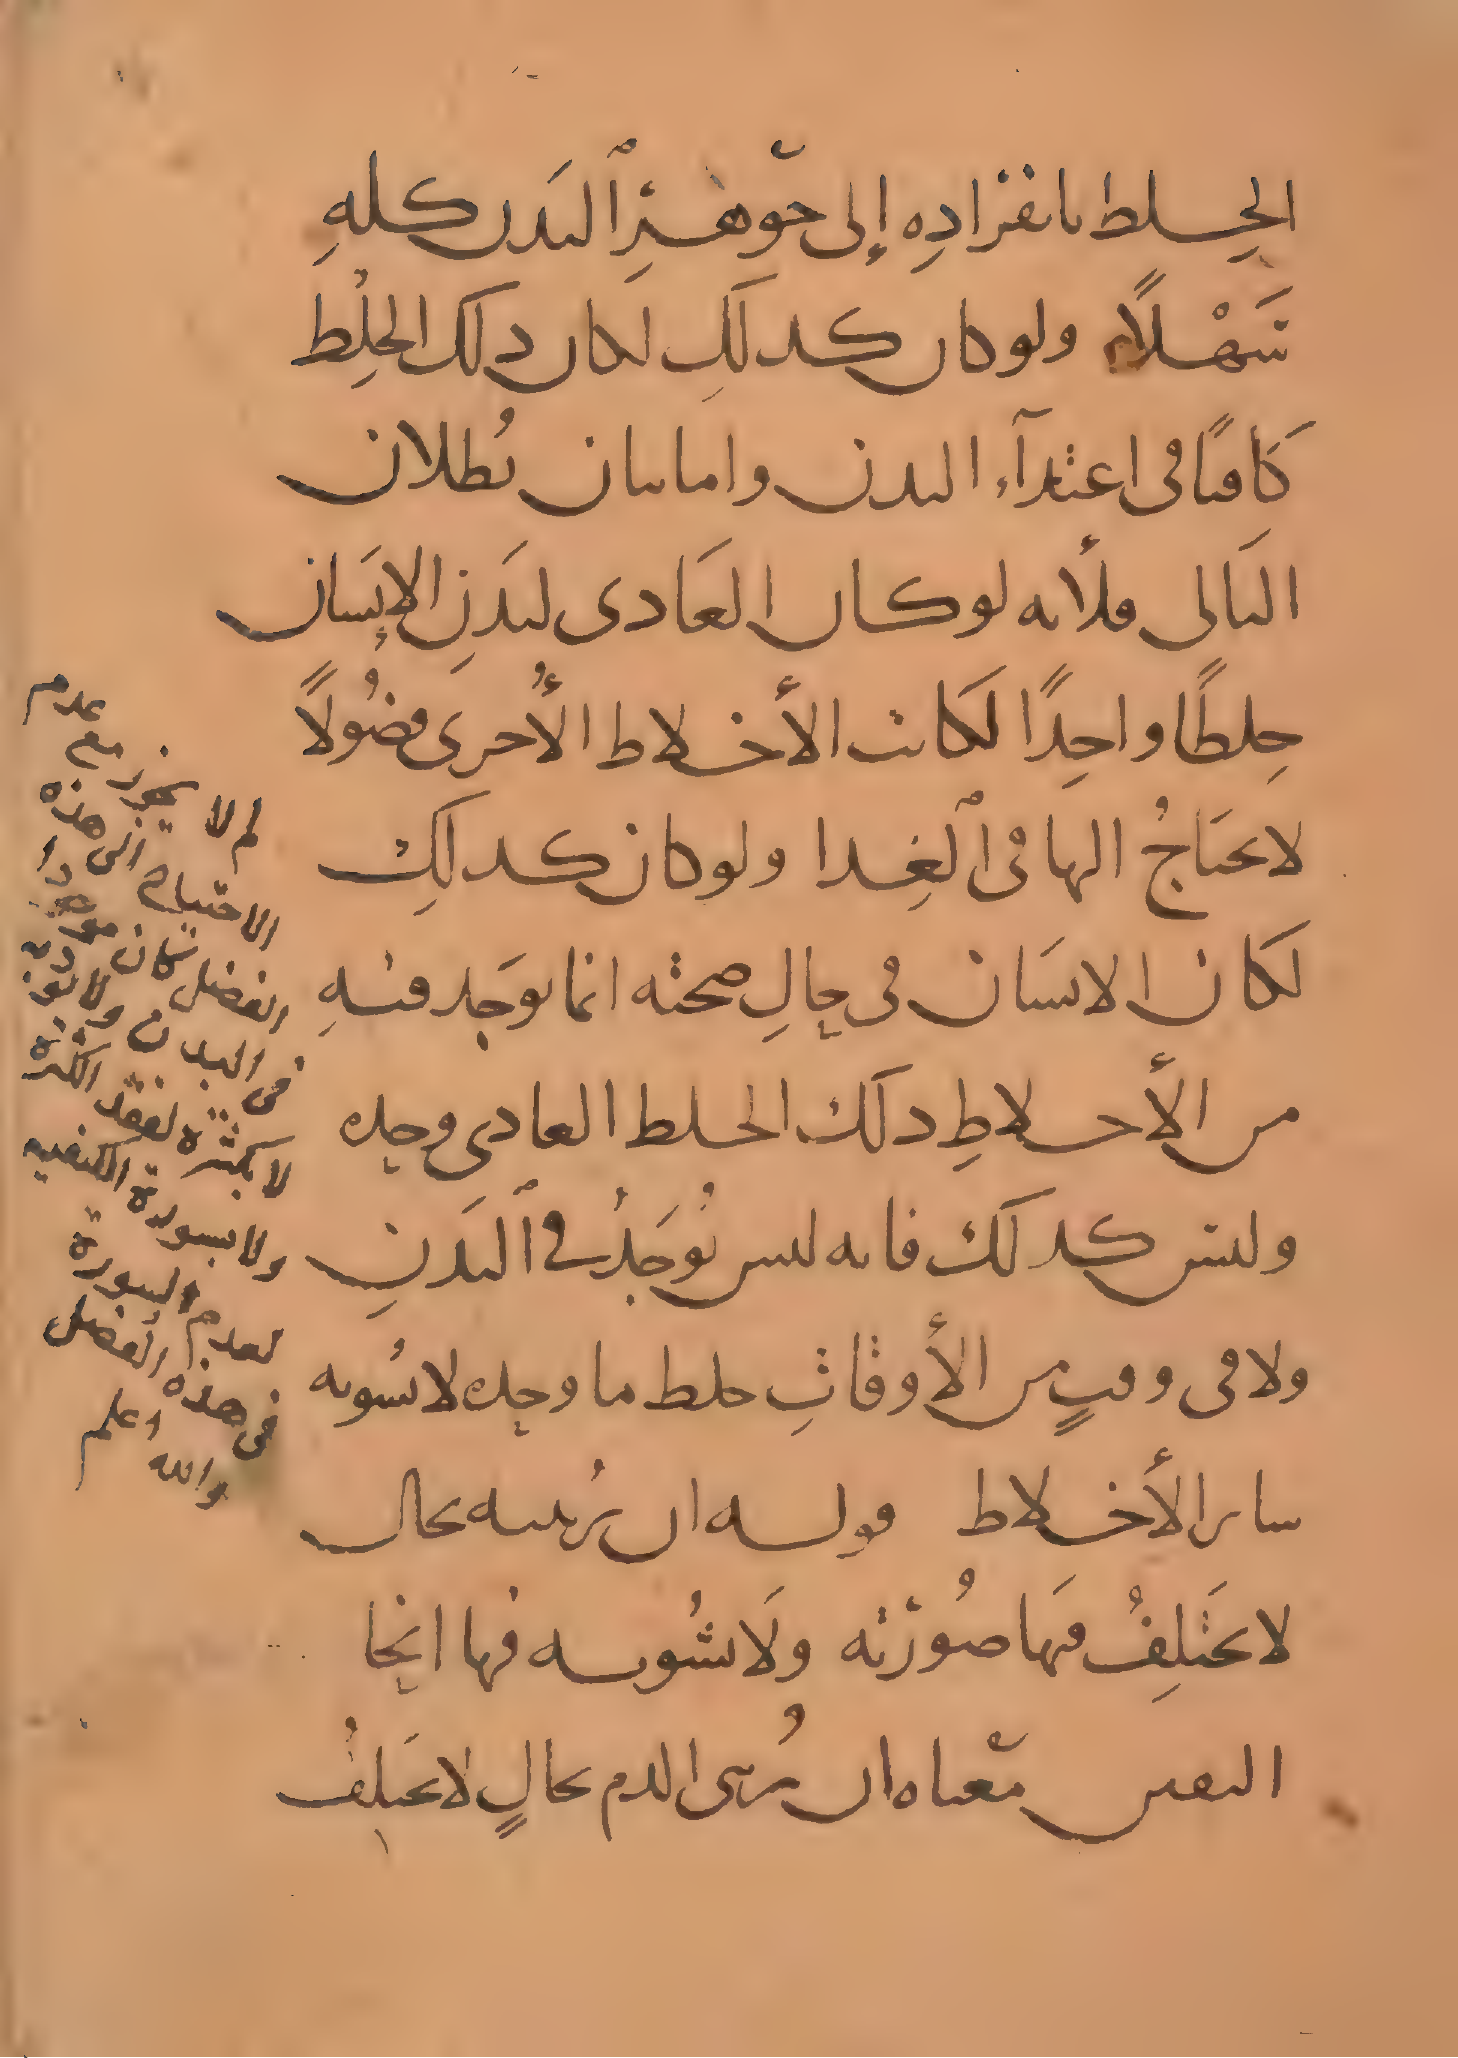 الخلط بانفرادِه إلى جَوهَرِ البَدن كلهِ
سَهْلاً ولو كان كذلك لكان ذلك الخلِط
كافيًا فى اغتذآء البدن واما بيان بُطلان
التَالى فلأنه لو كان الغَاذى لبَدَنِ الإنسَان
خِلطًا واحِدًا لَكانت الأخلاط الأُخرى فضُولاً
لا يحتَاجُ اليها فى الغِذا ولو كان كذلِك
لَكان الانسَان فى حالِ صحته انما يوجَد فيهِ
من الأخلاطِ ذلَك الخلط الغاذى وحده
وليس كذلَك فانه ليس يُوجَدُ فى البَدَنِ
ولا فى وقتٍ من الأوقاتِ خلط ما وحده لا يشُوبه
سائر الأخلاط قولـه ان يُرئيـه بحال
لا تختَلِفُ فيهَا صُورَته ولَا يشُوبـه فيها
النفس معناه ان يُرى الدم بحالٍ لا تختَلفُ
لم لا يجوز مع عدم
الاحتياج الى هذه
الفضل كان موجودا
فى البدن ولا يوذيه
لا بكثرة لفقد الكثرة
ولا بسورة الكيفية
لعدم السورة
فى هذه الفضل
والله اعلم